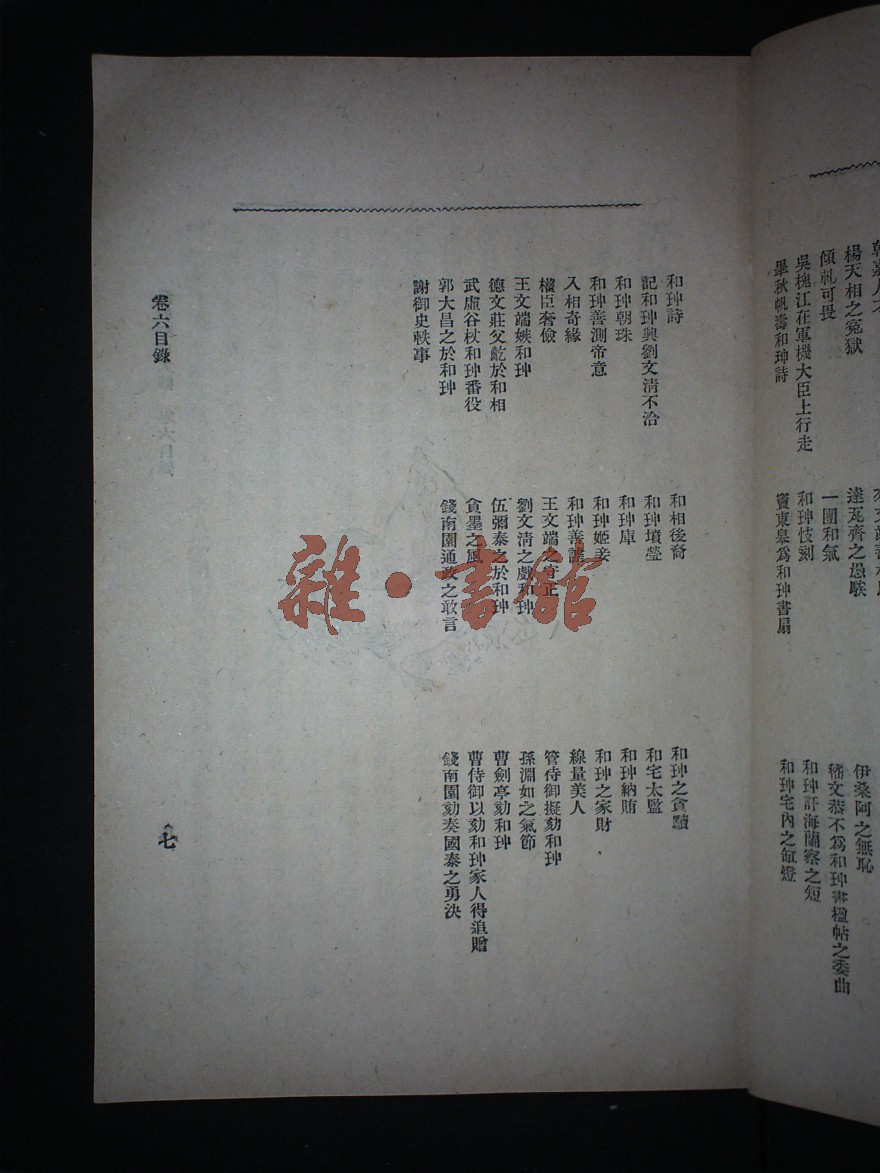 楊天相之冤獄
傾軋可畏
吳槐江在軍機大臣上行走
畢秋帆壽和珅詩
達瓦齊之愚騃
一團和氣
和珅忮刻
竇東皋爲和珅書扇
伊桑阿之無恥
嵇文恭不爲和珅書楹帖之委曲
和珅訐海蘭察之短
和珅宅內之缸燈
和珅詩
記和珅與劉文清不洽
和珅朝珠
和珅善測帝意
入相奇緣
權臣奢儉
王文端嫉和珅
德文莊父齕於和相
武虛谷杖和珅番役
郭大昌之於和珅
謝御史軼事
和相後裔
和珅墳塋
和珅庫
和珅姬妾
和珅善謔
王文端之守正
劉文清之戲和珅
伍彌泰之於和珅
貪墨之風
錢南園通政之敢言
和珅之貪黷
和宅太監
和珅納賄
和珅之家財
線量美人
管侍御擬劾和珅
孫淵如之氣節
曹劍亭劾和珅
曹侍御以劾和珅家人得追贈
錢南園劾奏國泰之勇決
卷六目錄
七
雜·書館